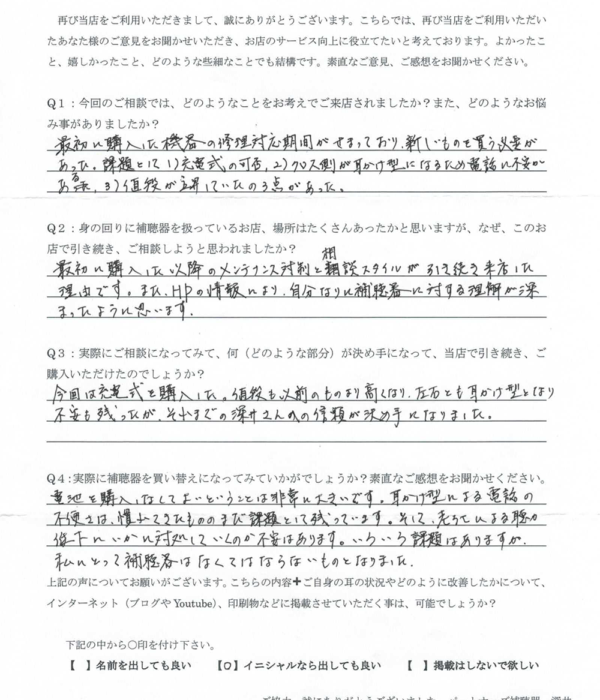 再び当店をご利用いただきまして、誠にありがとうございます。こちらでは、再び当店をご利用いただい
たあなた様のご意見をお聞かせいただき、お店のサービス向上に役立てたいと考えております。よかったこ
と、嬉しかったこと、どのような些細なことでも結構です。素直なご意見、ご感想をお聞かせください。
Q１：今回のご相談では、どのようなことをお考えでご来店されましたか？また、どのようなお悩
み事がありましたか？
最初に購入した機器の修理対応期間がせまっており、新しいものを買う必要が
あった。課題として1)充電式の可否、2)クロス側が耳かけ型になるため電話に不安が
ある、3)値段が上昇していたの3点があった。
Q２：身の回りに補聴器を扱っているお店、場所はたくさんあったかと思いますが、なぜ、このお
店で引き続き、ご相談しようと思われましたか？
最初に購入した以降のメンテナンス対制と相談スタイルが引き続き来店した
理由です。また、HPの情報により、自分なりに補聴器に対する理解が深
まったように思います。
Q３：実際にご相談になってみて、何（どのような部分）が決め手になって、当店で引き続き、ご
購入いただけたのでしょうか？
今回は充電式を購入した。値段も以前のものより高くなり、左右とも耳かけ型となり
不安も残ったが、それまでの深井さんへの信頼が決め手になりました。
Q４：実際に補聴器を買い替えになってみていかがでしょうか？素直なご感想をお聞かせください。
電池を購入しなくてよいということは非常に大きいです。耳かけ型による電話の
不便さは、慣れてきたもののまだ課題として残っています。そして、老いによる聴力
低下にいかに対処していくのか不安はあります。いろいろ課題はありますが、
私にとって補聴器はなくてはならないものとなりました。
上記の声についてお願いがございます。こちらの内容＋ご自身の耳の状況やどのように改善したかについて、
インターネット（ブログや Youtube）、印刷物などに掲載させていただく事は、可能でしょうか？
下記の中から〇印を付け下さい。
【　】名前を出しても良い　【〇】イニシャルなら出しても良い　【　】掲載はしないで欲しい